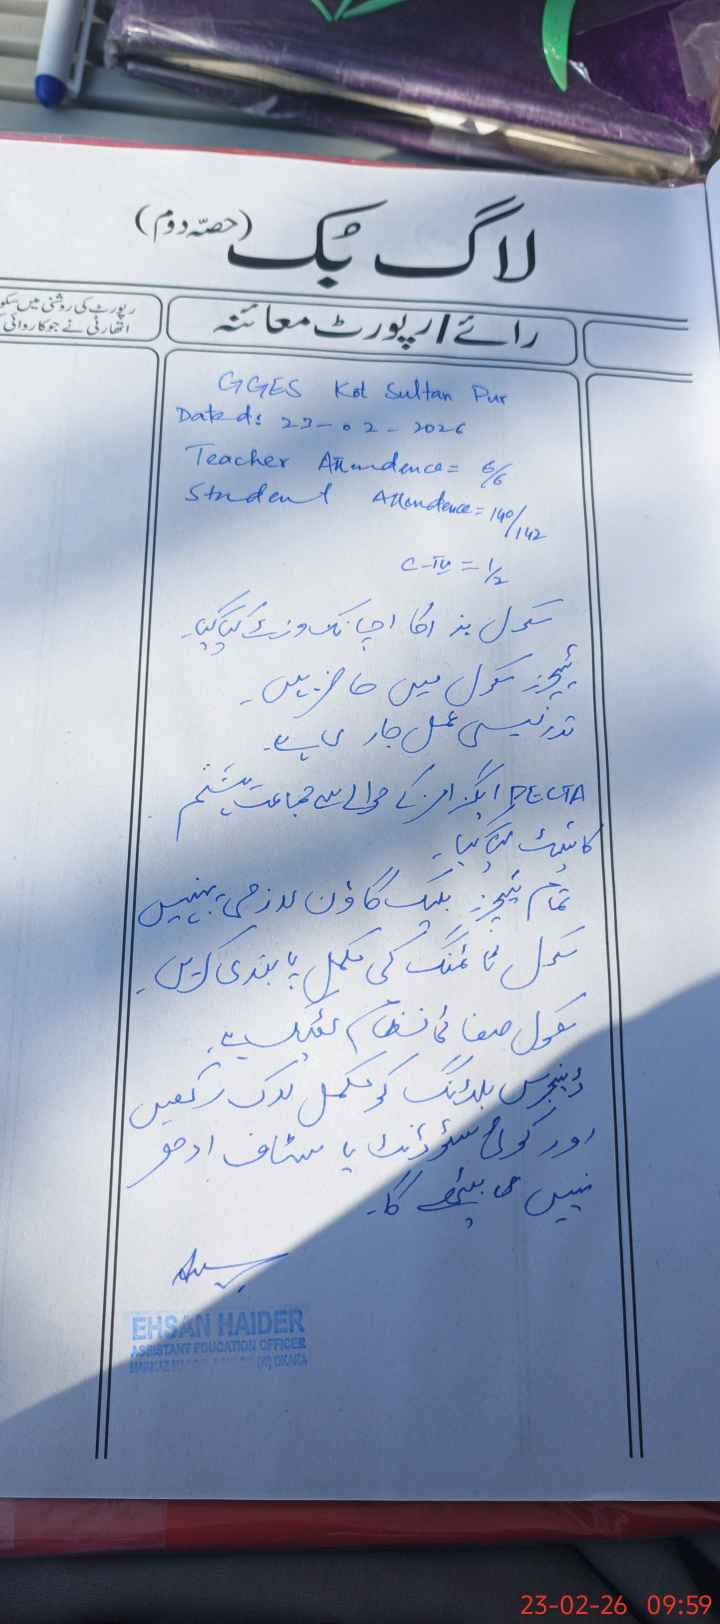 لاگ بُک (حصّہ دوم)
رائے / رپورٹ معائنہ
رپورٹ کی روشنی میں سکو
اتھارٹی نے جو کاروائی
GGES Kot Sultan Pur
Dated: 23-02-2026
Teacher Attendence = 6/6
Student Attendence = 140/142
C-IV = 1/2
سکول ہذا کا اچانک وزٹ کیا گیا۔
ٹیچرز سکول میں حاضر ہیں۔
تدریسی عمل جاری ہے۔
PECTA ایگزامز کے حوالے سے جماعت ہشتم
کا ٹیسٹ لیا گیا۔
تمام ٹیچرز بلیک گاؤن لازمی پہنیں
سکول ٹائمنگ کی مکمل پابندی کریں۔
سکول صفائی کا نظام ٹھیک ہے۔
ڈینجرس بلڈنگ کو مکمل لاک رکھیں
اور کوئی سٹوڈنٹ یا سٹاف ادھر
نہیں بیٹھے گا۔
EHSAN HAIDER
ASSISTANT EDUCATION OFFICER
MARKAZ OKARA
23-02-26 09:59